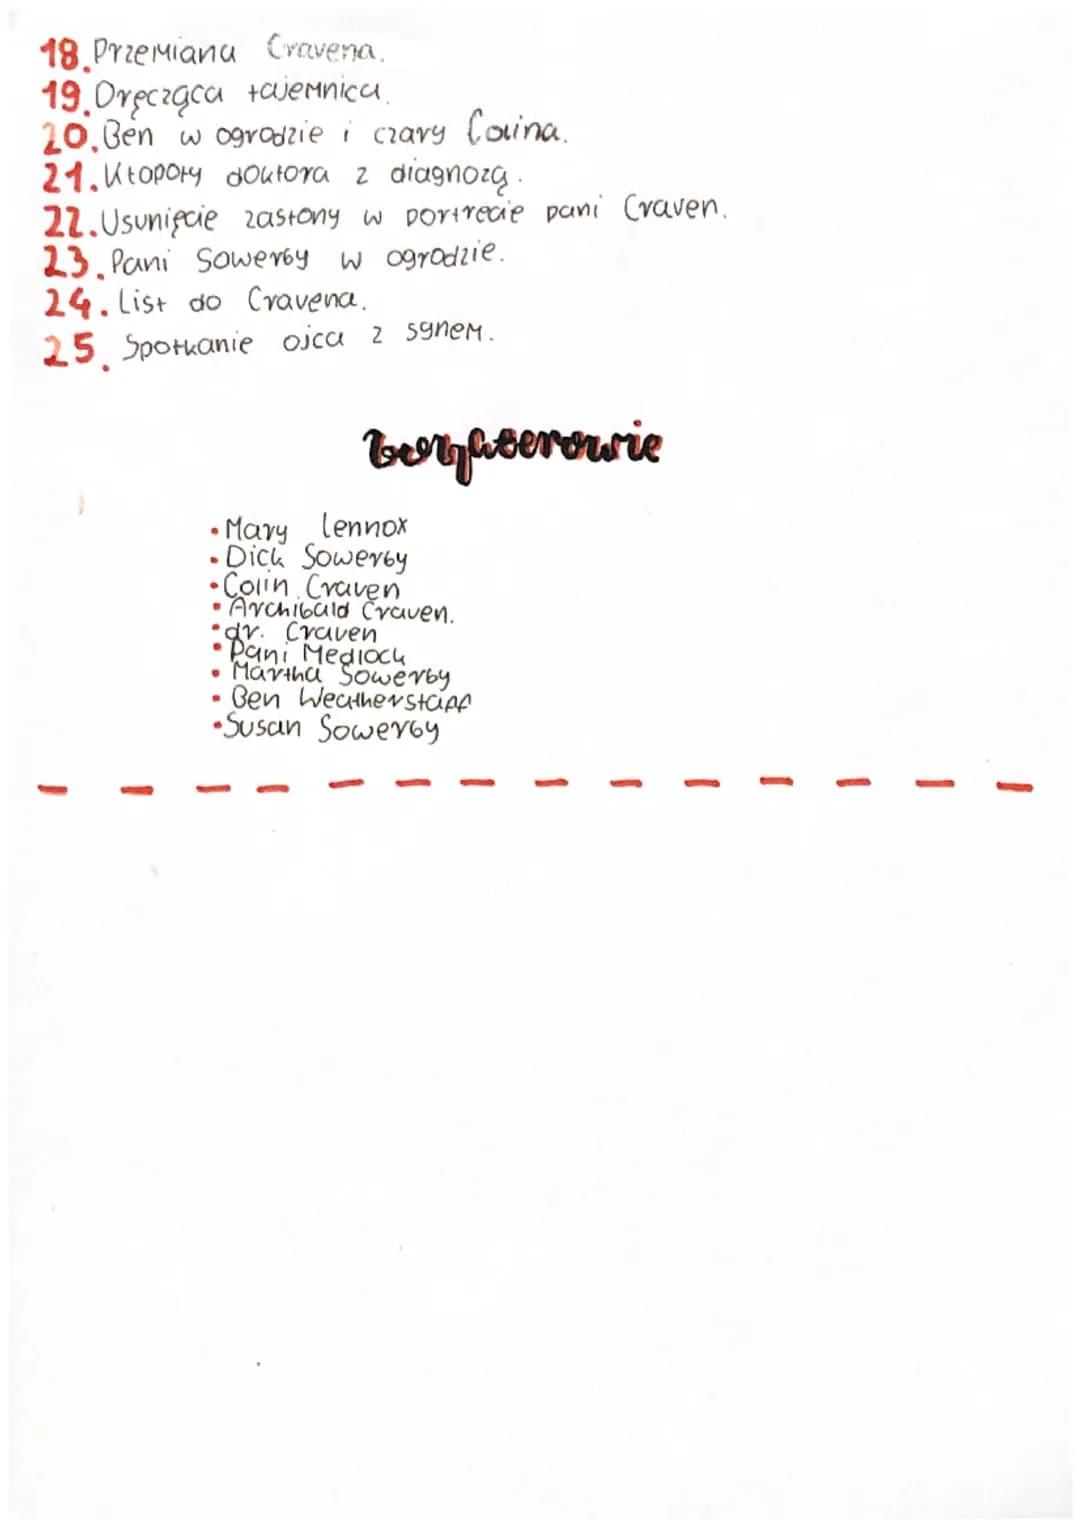 18. Przemiana Cravena.
19. Dręcząca tajemnica.
20. Ben w ogrodzie i czary Colina.
21. Kłopoty doktora z diagnozą.
22. Usunięcie zasłony w portrecie pani Craven.
23. Pani Sowerby w ogrodzie.
24. List do Cravena.
25. Spotkanie ojca z synem.
bohaterowie
• Mary Lennox
• Dick Sowerby
• Colin Craven
• Archibald Craven.
• dr. Craven
• Pani Medlock
• Martha Sowerby
• Ben Weatherstaff
• Susan Sowerby